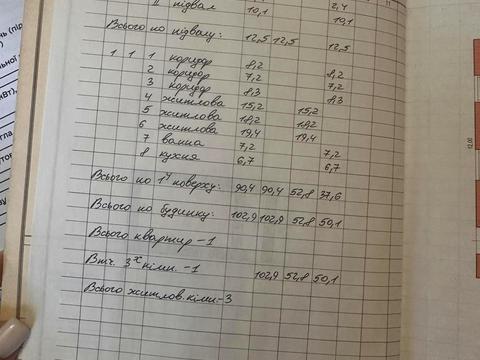 II підвал 10,1 2,4
10,1
Всього по підвалу: 12,5 12,5 12,5
1 1 1 коридор 8,2 8,2
2 коридор 7,2 7,2
3 коридор 8,3 8,3
4 житлова 15,2 15,2
5 житлова 18,2 18,2
6 житлова 19,4 19,4
7 ванна 7,2 7,2
8 кухня 6,7 6,7
Всього по 1у поверху: 90,4 90,4 52,8 37,6
Всього по будинку: 102,9 102,9 52,8 50,1
Всього квартир -1
В тч. 3х кімн. -1 102,9 52,8 50,1
Всього житлов. кімн-3
12,00